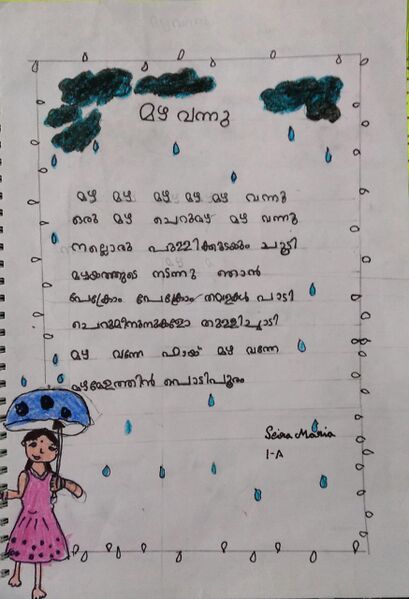 മഴ വന്നു
മഴ മഴ മഴ മഴ മഴ വന്നു
ഒരു മഴ ചെറുമഴ മഴ വന്നു
നല്ലൊരു പുള്ളിക്കുടയും ചൂടി
മഴയത്തൂടെ നടന്നു ഞാൻ
പേക്രോം പേക്രോം തവളകൾ പാടി
ചെറുമീനുകളോ തുള്ളിച്ചാടി
മഴ വന്നേ ഹായ് മഴ വന്നേ
മഴമേളത്തിൻ പൊടിപൂരം
Seira Maria
1-A